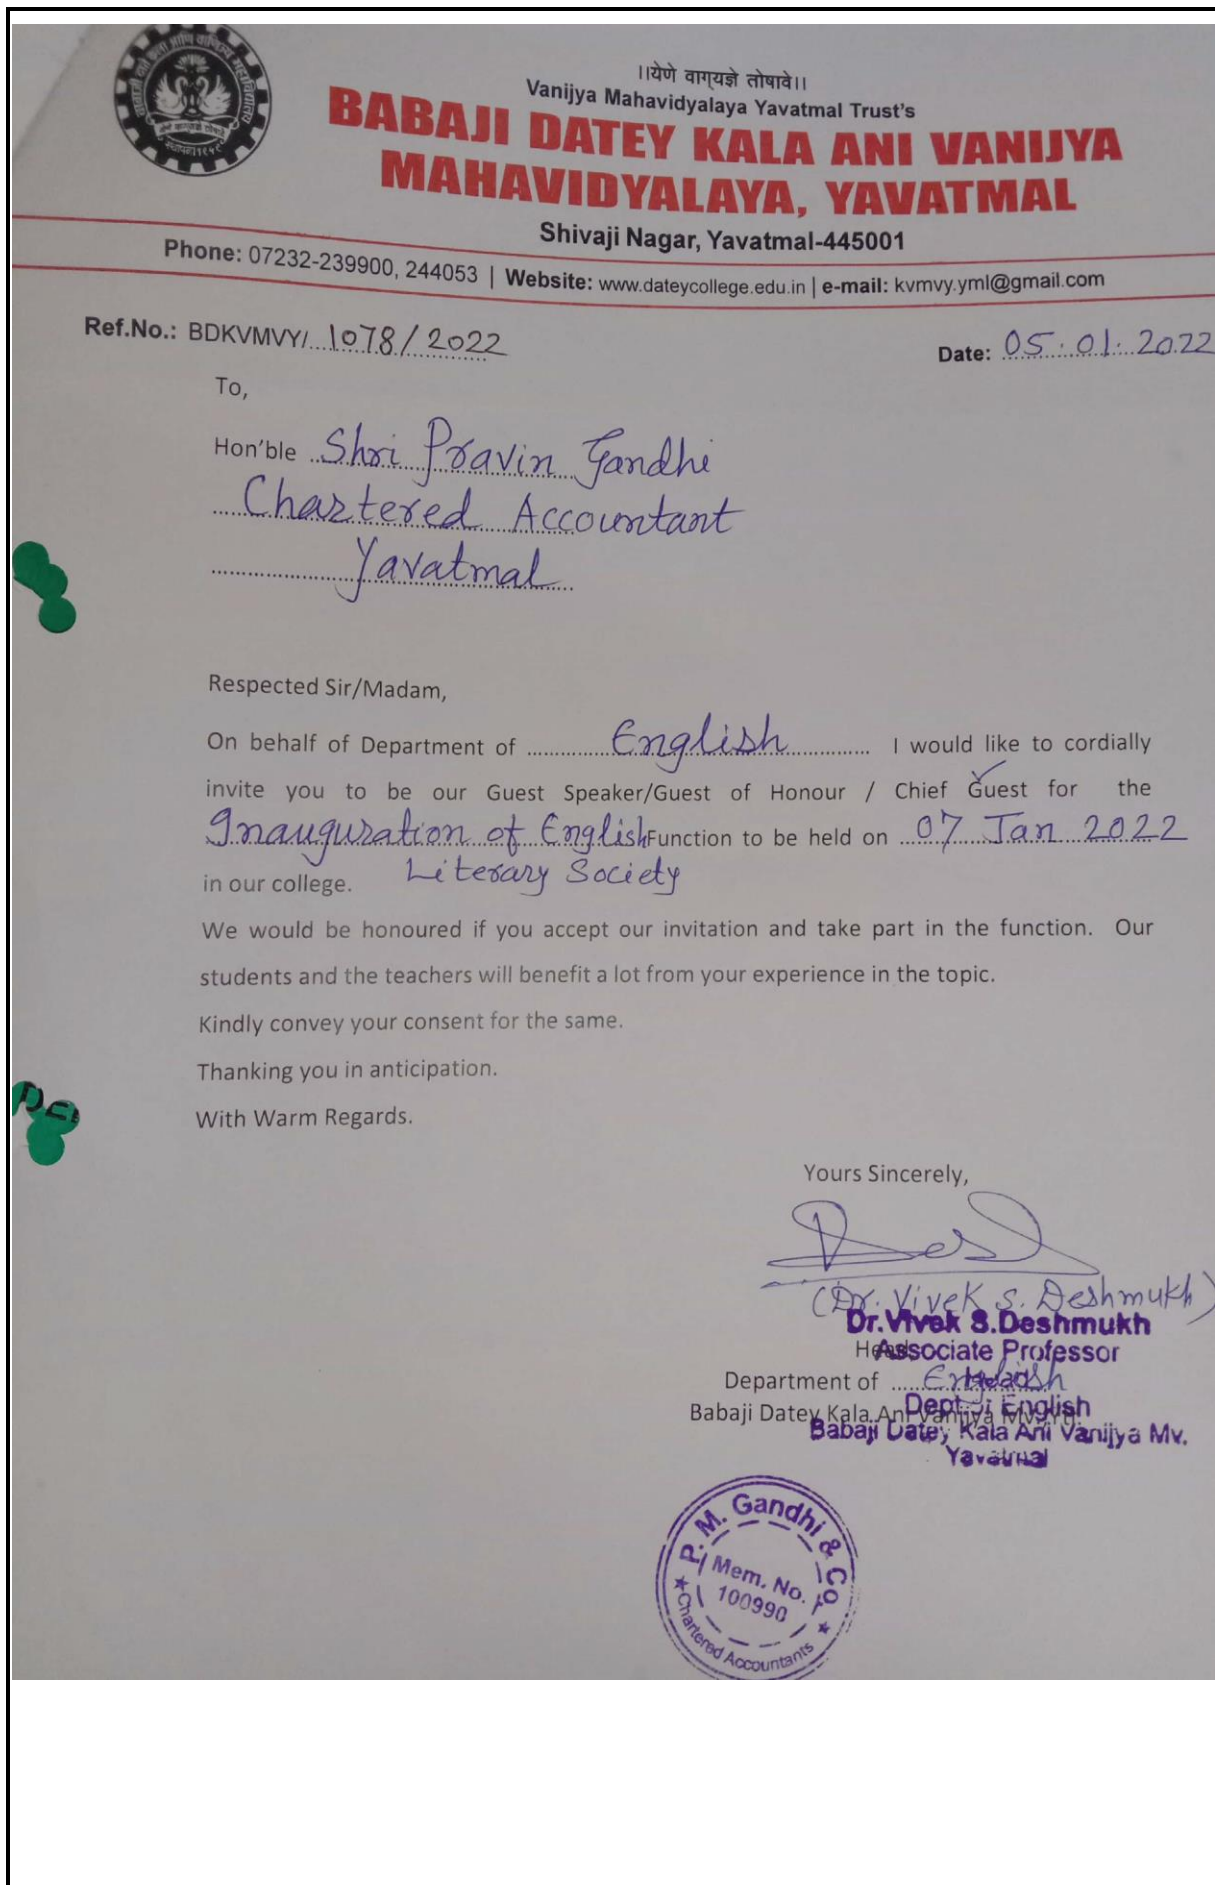 ।।येणे वाग्‌यज्ञे तोषावे।।
Vanijya Mahavidyalaya Yavatmal Trust's
BABAJI DATEY KALA ANI VANIJYA
MAHAVIDYALAYA, YAVATMAL
Shivaji Nagar, Yavatmal-445001
Phone: 07232-239900, 244053 | Website: www.dateycollege.edu.in | e-mail: kvmvy.yml@gmail.com
Ref.No.: BDKVMVY/ 1078/2022 Date: 05.01.2022
To,
Hon'ble Shri Pravin Gandhi
Chartered Accountant
Yavatmal
Respected Sir/Madam,
On behalf of Department of English I would like to cordially
invite you to be our Guest Speaker/Guest of Honour / Chief Guest for the
Inauguration of English Function to be held on 07 Jan 2022
in our college. Literary Society
We would be honoured if you accept our invitation and take part in the function. Our
students and the teachers will benefit a lot from your experience in the topic.
Kindly convey your consent for the same.
Thanking you in anticipation.
With Warm Regards.
Yours Sincerely,
(Dr. Vivek S. Deshmukh)
Dr.Vivek S.Deshmukh
Associate Professor
Head
Department of English
Dept of English
Babaji Datey Kala Ani Vanijya Mv.
Babaji Datey Kala Ani Vanijya Mv.
Yavatmal
P. M. Gandhi & Co.
Mem. No.
100990
Chartered Accountants